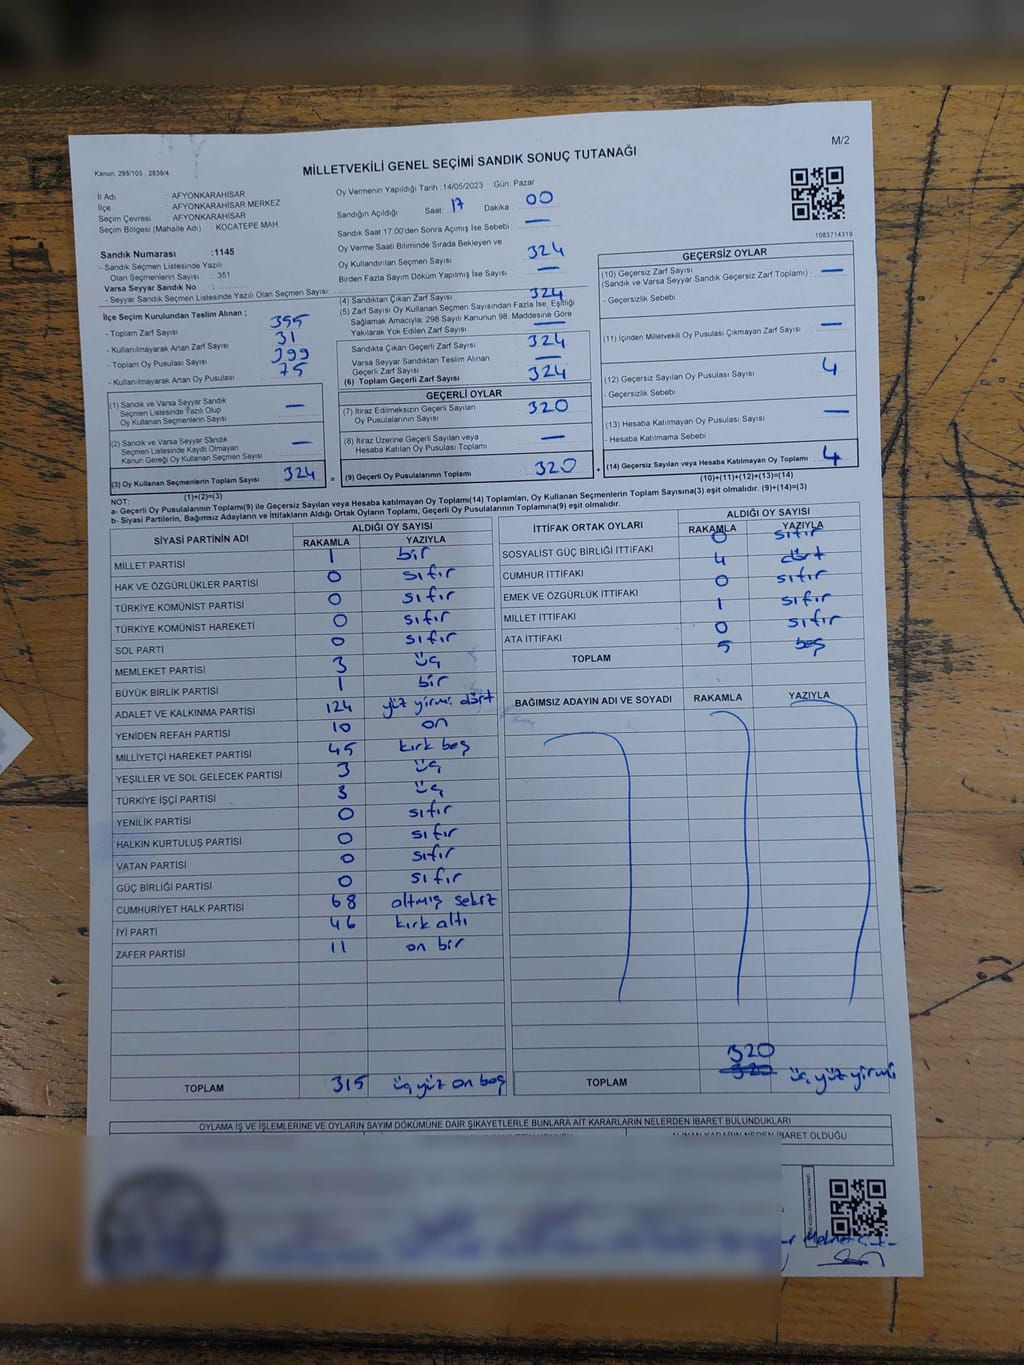 M/2
Kanun: 298/105 , 2839/4
MİLLETVEKİLİ GENEL SEÇİMİ SANDIK SONUÇ TUTANAĞI
İl Adı : AFYONKARAHİSAR
İlçe : AFYONKARAHİSAR MERKEZ
Seçim Çevresi : AFYONKARAHİSAR
Seçim Bölgesi (Mahalle Adı) : KOCATEPE MAH
Oy Vermenin Yapıldığı Tarih : 14/05/2023 Gün: Pazar
Sandığın Açıldığı Saat: 17 Dakika : 00
Sandık Saat 17:00'den Sonra Açımış İse Sebebi : —
Oy Verme Saati Bitiminde Sırada Bekleyen ve
Oy Kullandırılan Seçmen Sayısı : 324
Birden Fazla Sayım Döküm Yapılmış İse Sayısı : —
1083714319
Sandık Numarası : 1145
- Sandık Seçmen Listesinde Yazılı
Olan Seçmenlerin Sayısı : 351
Varsa Seyyar Sandık No :
- Seyyar Sandık Seçmen Listesinde Yazılı Olan Seçmen Sayısı:
İlçe Seçim Kurulundan Teslim Alınan ;
- Toplam Zarf Sayısı : 355
- Kullanılmayarak Artan Zarf Sayısı : 31
- Toplam Oy Pusulası Sayısı : 399
- Kullanılmayarak Artan Oy Pusulası : 75
(1) Sandık ve Varsa Seyyar Sandık
Seçmen Listesinde Yazılı Olup
Oy Kullanan Seçmenlerin Sayısı : —
(2) Sandık ve Varsa Seyyar Sandık
Seçmen Listesinde Kayıtlı Olmayan
Kanun Gereği Oy Kullanan Seçmen Sayısı : —
(3) Oy Kullanan Seçmenlerin Toplam Sayısı 324
(1)+(2)=(3)
(4) Sandıktan Çıkan Zarf Sayısı : 324
(5) Zarf Sayısı Oy Kullanan Seçmen Sayısından Fazla İse, Eşitliği
Sağlamak Amacıyla, 298 Sayılı Kanunun 98. Maddesine Göre
Yakılarak Yok Edilen Zarf Sayısı : —
Sandıkta Çıkan Geçerli Zarf Sayısı : 324
Varsa Seyyar Sandıktan Teslim Alınan
Geçerli Zarf Sayısı : —
(6) Toplam Geçerli Zarf Sayısı : 324
GEÇERLİ OYLAR
(7) İtiraz Edilmeksizin Geçerli Sayılan
Oy Pusulalarının Sayısı : 320
(8) İtiraz Üzerine Geçerli Sayılan veya
Hesaba Katılan Oy Pusulası Toplamı : —
= (9) Geçerli Oy Pusulalarının Toplamı : 320 +
GEÇERSİZ OYLAR
(10) Geçersiz Zarf Sayısı
(Sandık ve Varsa Seyyar Sandık Geçersiz Zarf Toplamı) : —
- Geçersizlik Sebebi :
(11) İçinden Milletvekili Oy Pusulası Çıkmayan Zarf Sayısı : —
(12) Geçersiz Sayılan Oy Pusulası Sayısı : 4
- Geçersizlik Sebebi
(13) Hesaba Katılmayan Oy Pusulası Sayısı : —
- Hesaba Katılmama Sebebi
(14) Geçersiz Sayılan veya Hesaba Katılmayan Oy Toplamı : 4
(10)+(11)+(12)+(13)=(14)
NOT:
a- Geçerli Oy Pusulalarının Toplamı(9) ile Geçersiz Sayılan veya Hesaba katılmayan Oy Toplamı(14) Toplamları, Oy Kullanan Seçmenlerin Toplam Sayısına(3) eşit olmalıdır. (9)+(14)=(3)
b- Siyasi Partilerin, Bağımsız Adayların ve İttifakların Aldığı Ortak Oyların Toplamı, Geçerli Oy Pusulalarının Toplamına(9) eşit olmalıdır.
SİYASİ PARTİNİN ADI ALDIĞI OY SAYISI
RAKAMLA YAZIYLA
MİLLET PARTİSİ 1 bir
HAK VE ÖZGÜRLÜKLER PARTİSİ 0 sıfır
TÜRKİYE KOMÜNİST PARTİSİ 0 sıfır
TÜRKİYE KOMÜNİST HAREKETİ 0 sıfır
SOL PARTİ 0 sıfır
MEMLEKET PARTİSİ 3 üç
BÜYÜK BİRLİK PARTİSİ 1 bir
ADALET VE KALKINMA PARTİSİ 124 yüz yirmi dört
YENİDEN REFAH PARTİSİ 10 on
MİLLİYETÇİ HAREKET PARTİSİ 45 kırk beş
YEŞİLLER VE SOL GELECEK PARTİSİ 3 üç
TÜRKİYE İŞÇİ PARTİSİ 3 üç
YENİLİK PARTİSİ 0 sıfır
HALKIN KURTULUŞ PARTİSİ 0 sıfır
VATAN PARTİSİ 0 sıfır
GÜÇ BİRLİĞİ PARTİSİ 0 sıfır
CUMHURİYET HALK PARTİSİ 68 altmış sekiz
İYİ PARTİ 46 kırk altı
ZAFER PARTİSİ 11 on bir
TOPLAM 315 üç yüz on beş
İTTİFAK ORTAK OYLARI ALDIĞI OY SAYISI
RAKAMLA YAZIYLA
SOSYALİST GÜÇ BİRLİĞİ İTTİFAKI 0 sıfır
CUMHUR İTTİFAKI 4 dört
EMEK VE ÖZGÜRLÜK İTTİFAKI 0 sıfır
MİLLET İTTİFAKI 1 sıfır
ATA İTTİFAKI 0 sıfır
TOPLAM 5 beş
BAĞIMSIZ ADAYIN ADI VE SOYADI RAKAMLA YAZIYLA
320
TOPLAM 320 üç yüz yirmi
OYLAMA İŞ VE İŞLEMLERİNE VE OYLARIN SAYIM DÖKÜMÜNE DAİR ŞİKAYETLERLE BUNLARA AİT KARARLARIN NELERDEN İBARET BULUNDUKLARI
ALINAN KARARIN NEDEN İBARET OLDUĞU